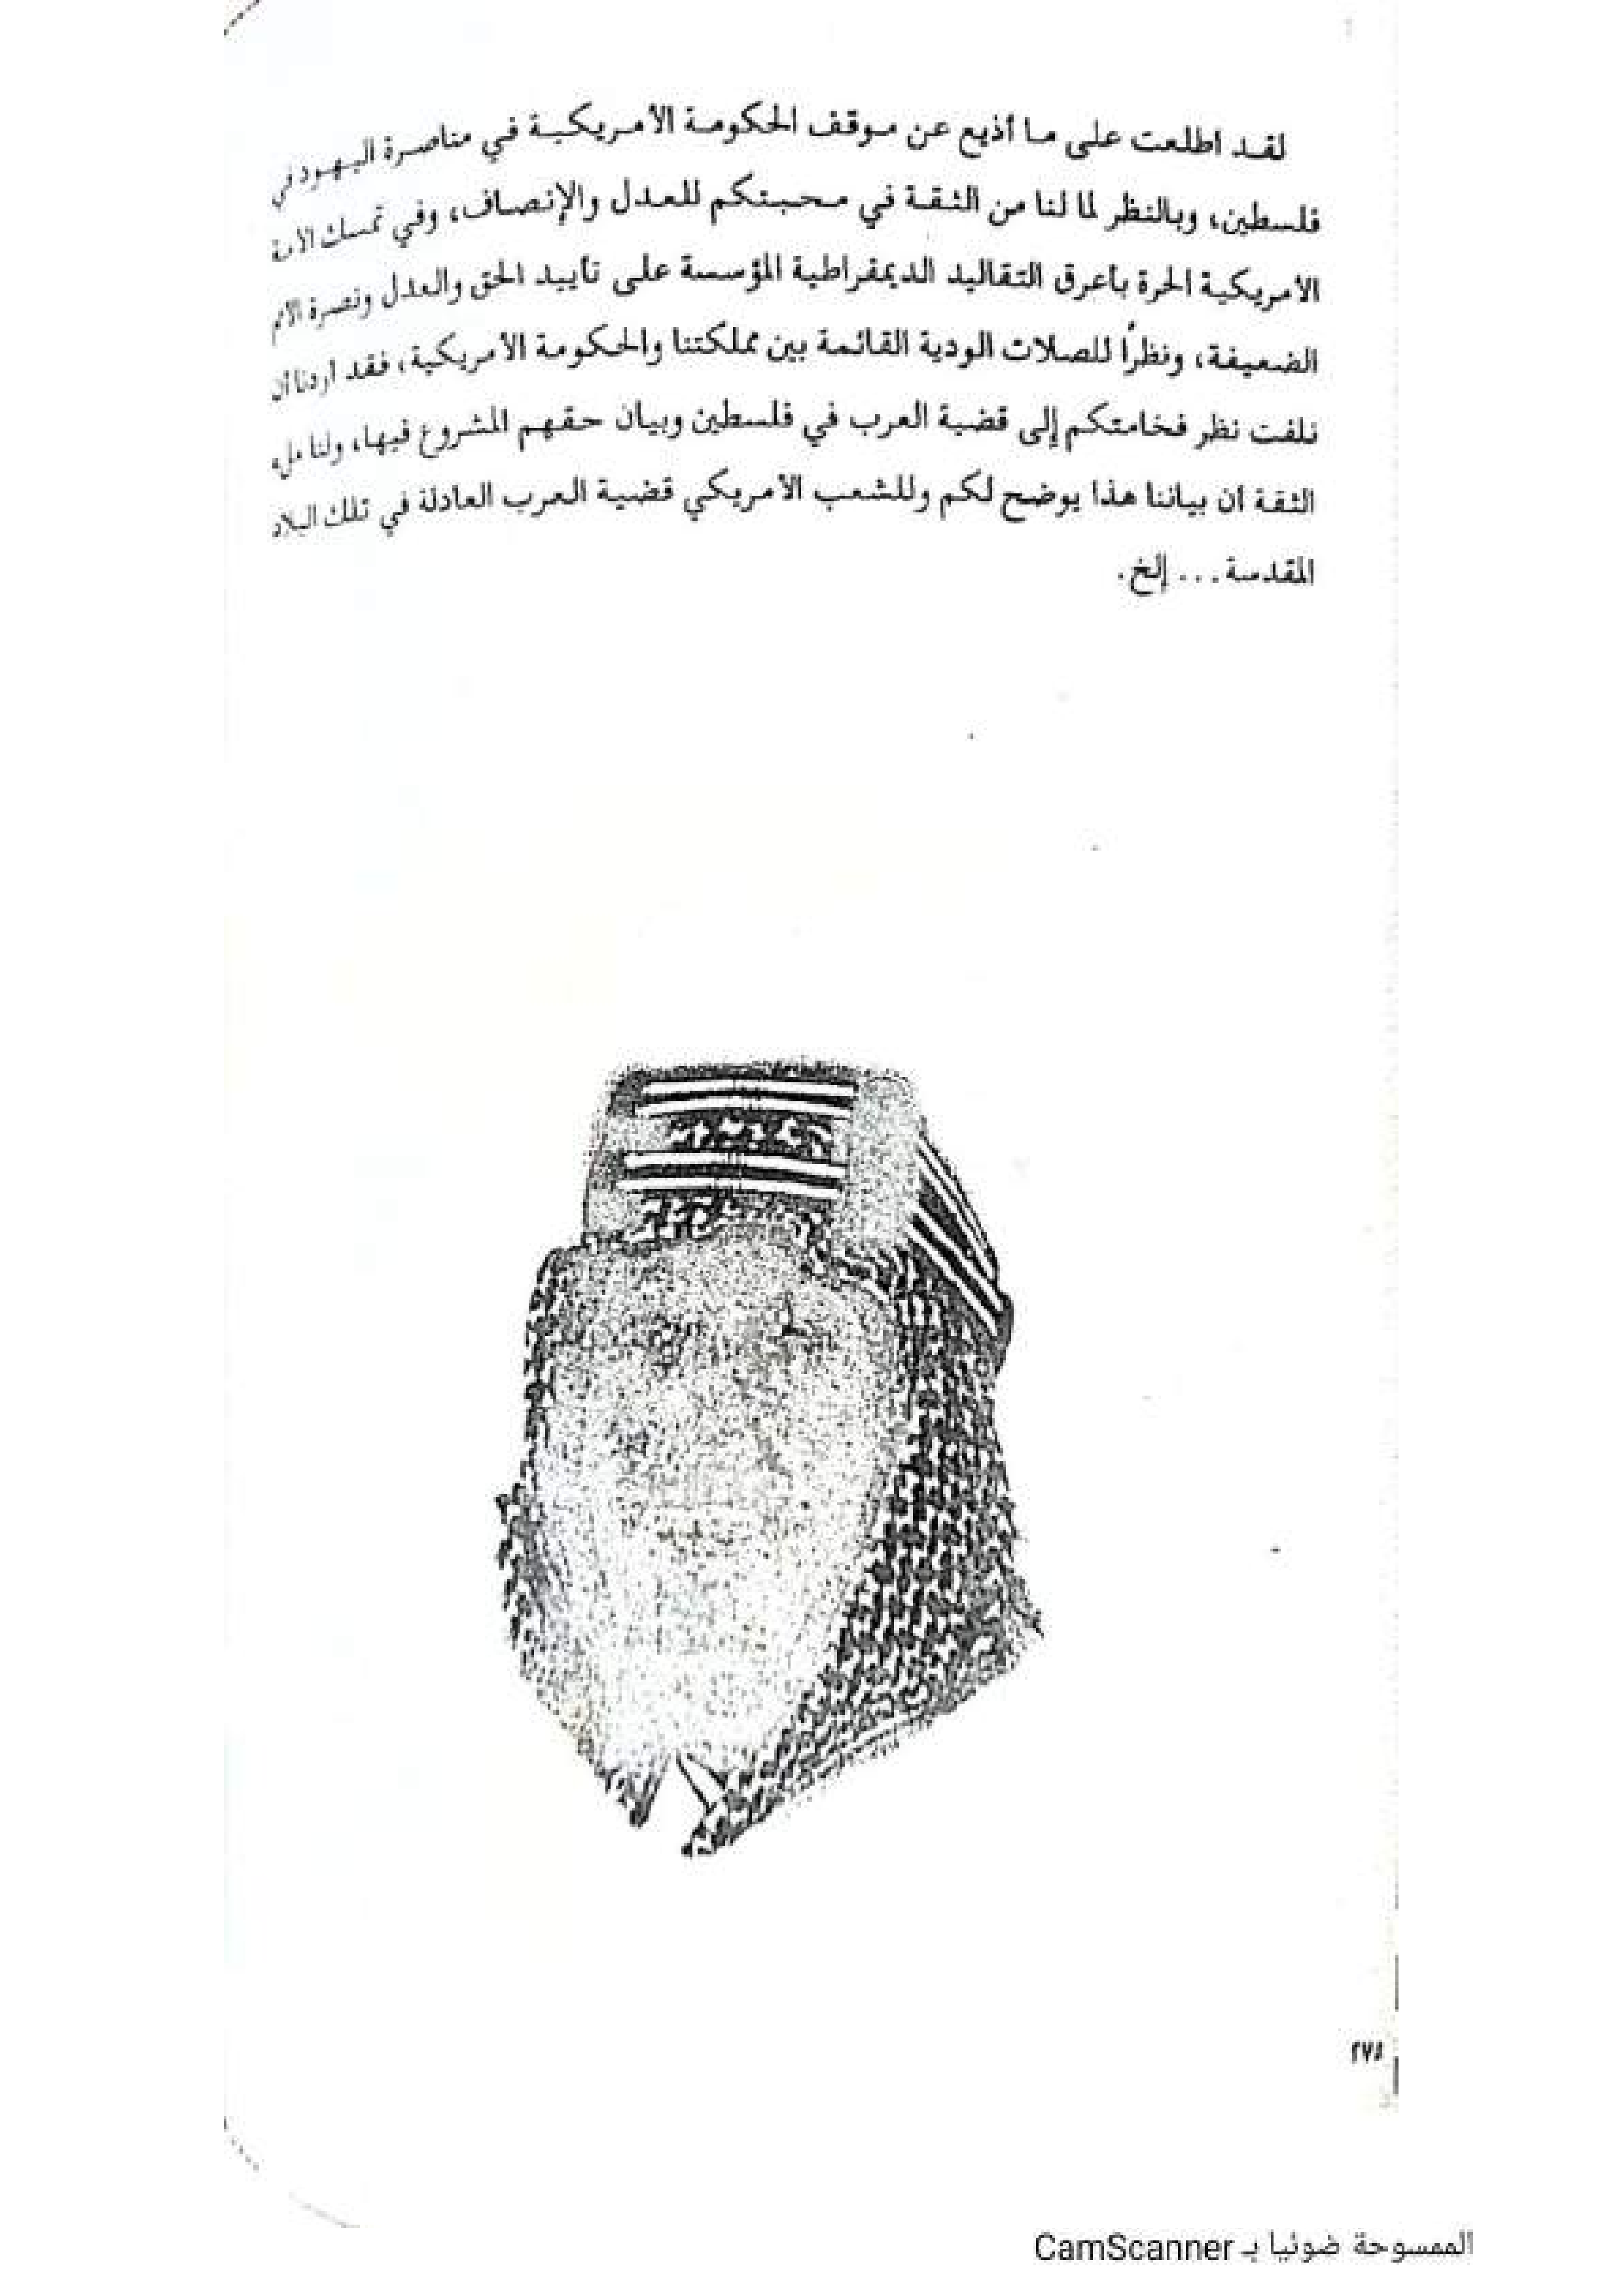 لقد اطلعت على ما أذيع عن موقف الحكومة الأمريكية في مناصرة اليهود في
فلسطين، وبالنظر لما لنا من الثقة في محبتكم للعدل والإنصاف، وفي تمسك الأمة
الأمريكية الحرة بأعرق التقاليد الديمقراطية المؤسسة على تأييد الحق والعدل ونصرة الأمم
الضعيفة، ونظراً للصلات الودية القائمة بين مملكتنا والحكومة الأمريكية، فقد أردنا أن
نلفت نظر فخامتكم إلى قضية العرب في فلسطين وبيان حقهم المشروع فيها، ولنا ملء
الثقة أن بياننا هذا يوضح لكم وللشعب الأمريكي قضية العرب العادلة في تلك البلاد
المقدسة... إلخ.
٢٧٨
الممسوحة ضوئيا بـ CamScanner